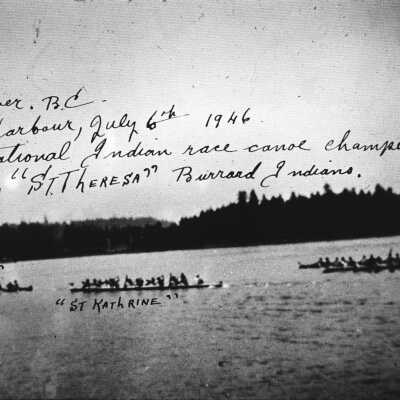 ver. B.C.
Harbour, July 6th 1946.
national Indian race canoe champi
"ST. THERESA" Burrard Indians.
"ST KATHRINE"